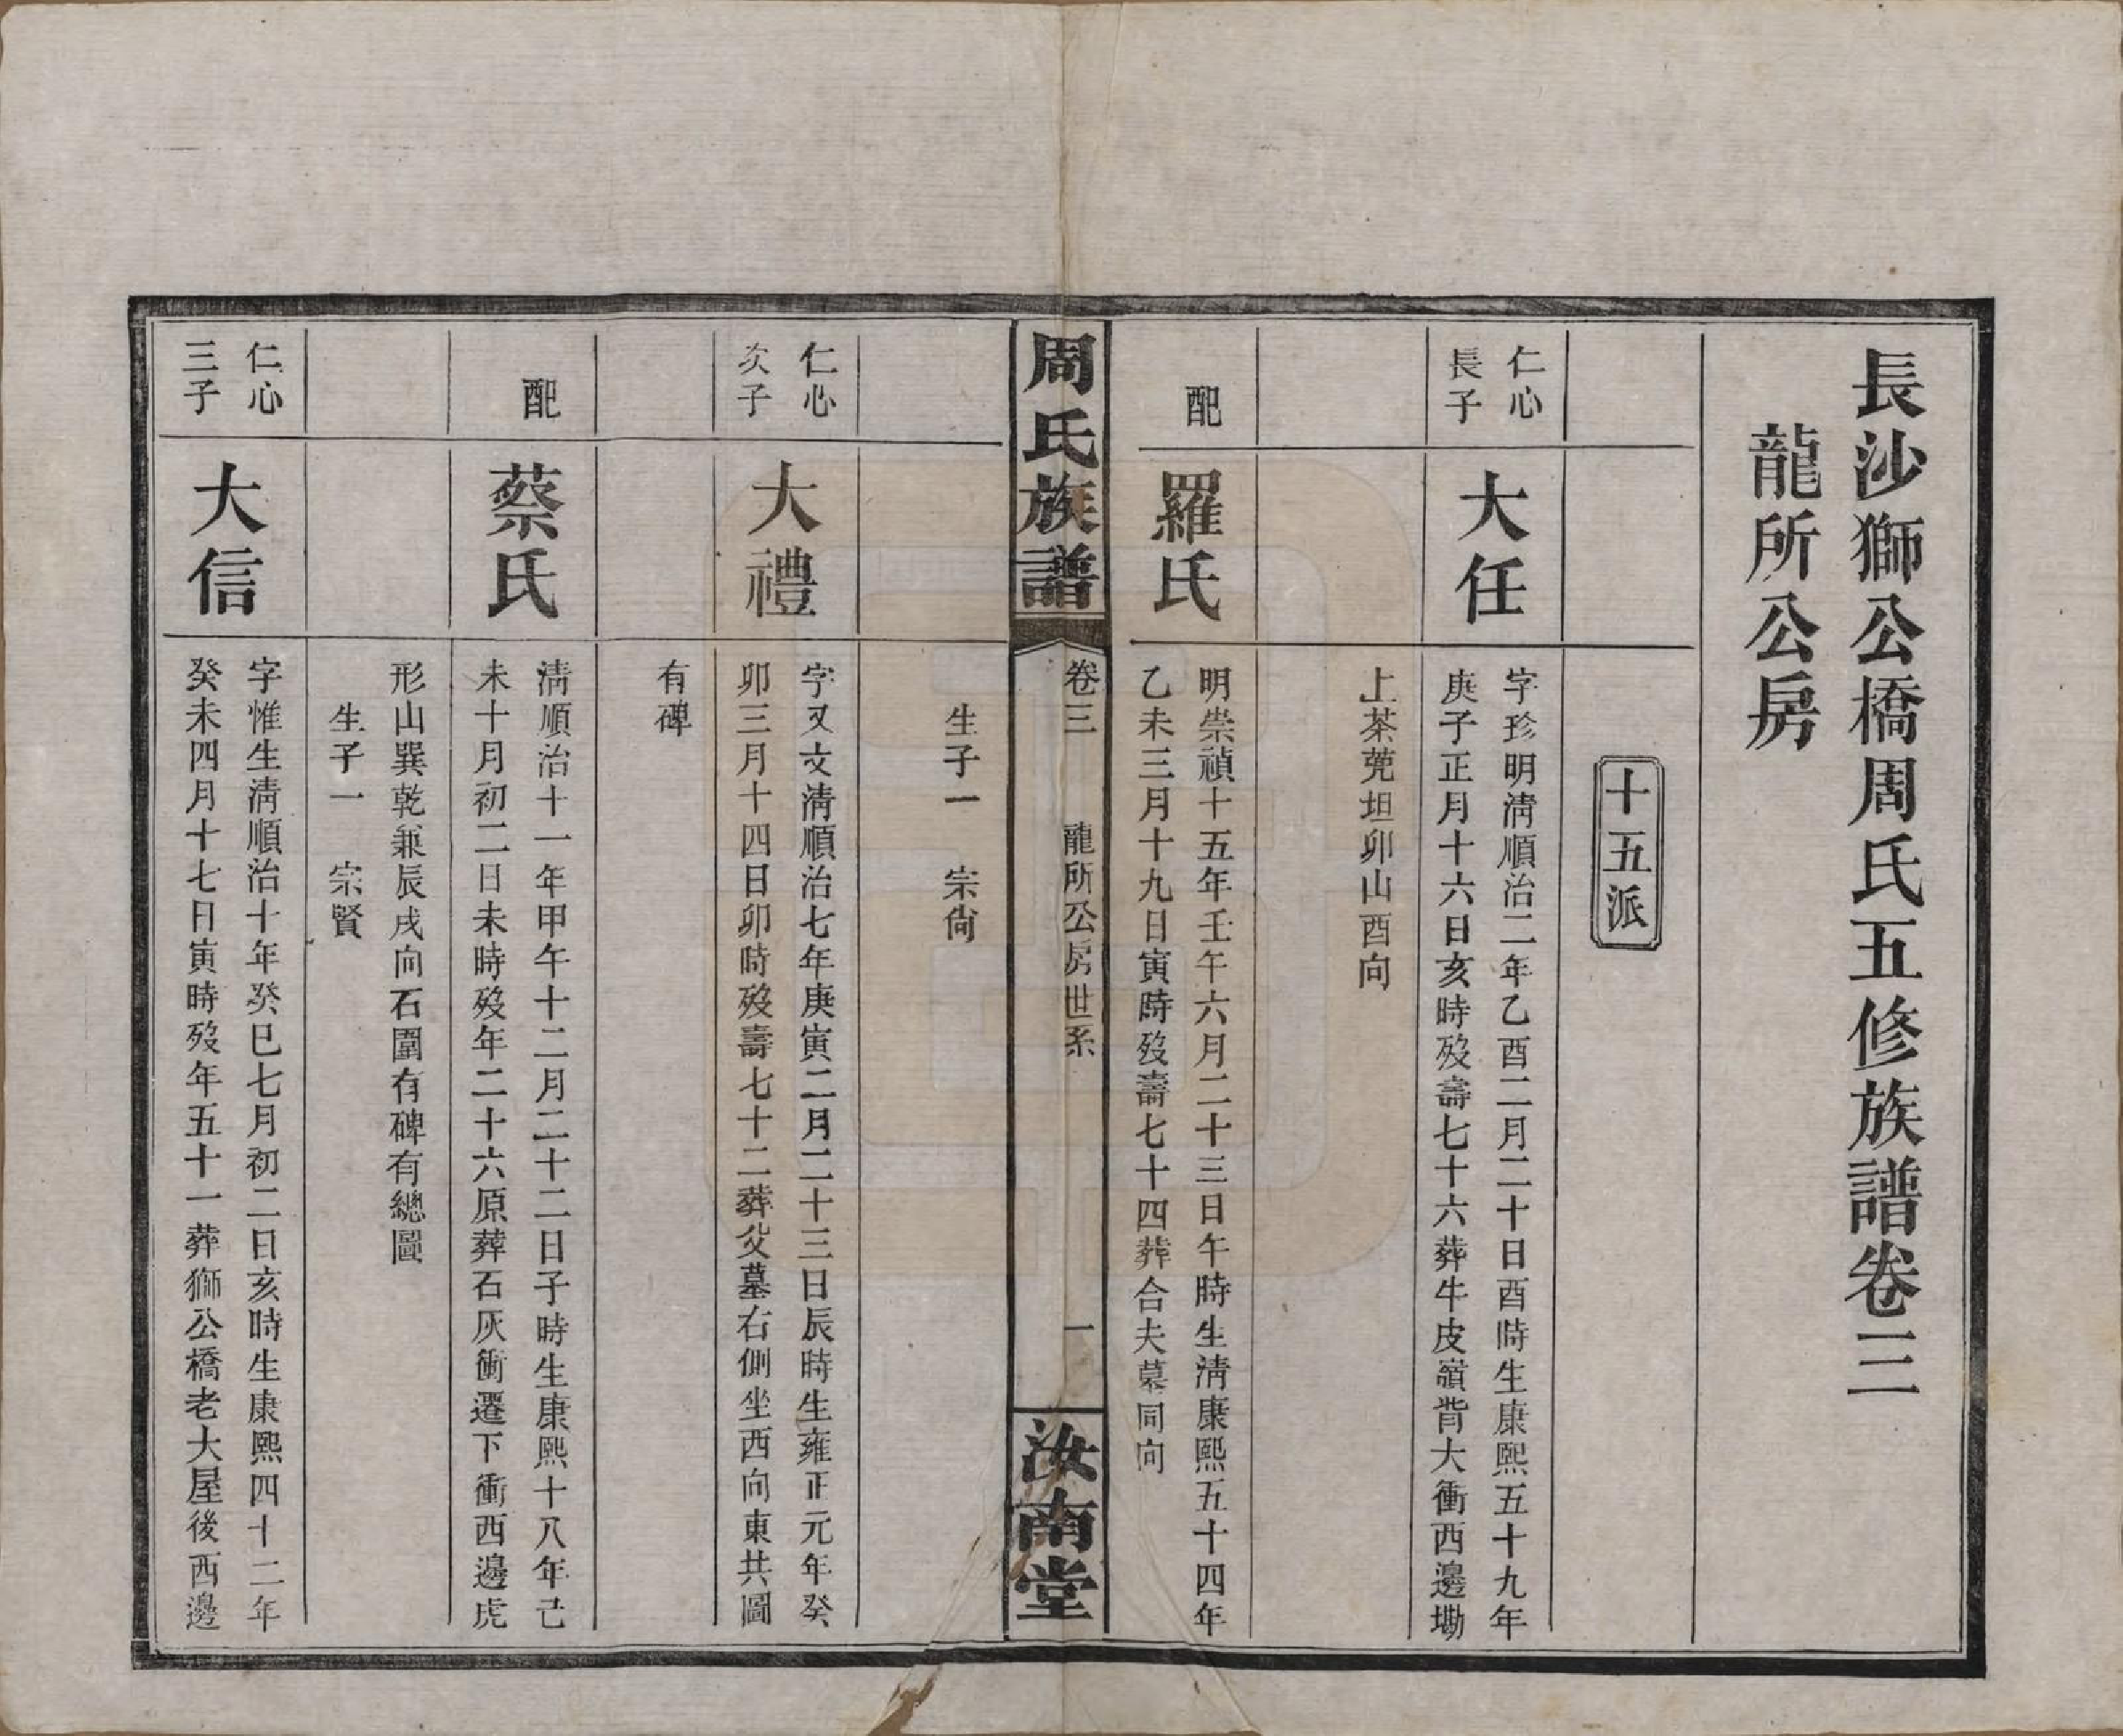 長沙獅公橋周氏五修族譜卷三
龍所公房
十五派
仁心
長子
大任
字珍明清順治二年乙酉二月二十日酉時生康熙五十九年
庚子正月十六日亥時歿壽七十六葬牛皮嶺背大衝西邊塝
上茶蔸坦卯山酉向
配
羅氏
明崇禎十五年壬午六月二十三日午時生清康熙五十四年
乙未三月十九日寅時歿壽七十四葬合夫墓同向
周氏族譜
卷三
龍所公房世系
一
汝南堂
生子一 宗尙
仁心
次子
大禮
字又文清順治七年庚寅二月二十三日辰時生雍正元年癸
卯三月十四日卯時歿壽七十二葬父墓右側坐西向東共圖
有碑
配
蔡氏
清順治十一年甲午十二月二十二日子時生康熙十八年己
未十月初二日未時歿年二十六原葬石灰衝遷下衝西邊虎
形山巽乾兼辰戌向石圍有碑有總圖
生子一 宗賢
仁心
三子
大信
字惟生清順治十年癸巳七月初二日亥時生康熙四十二年
癸未四月十七日寅時歿年五十一葬獅公橋老大屋後西邊